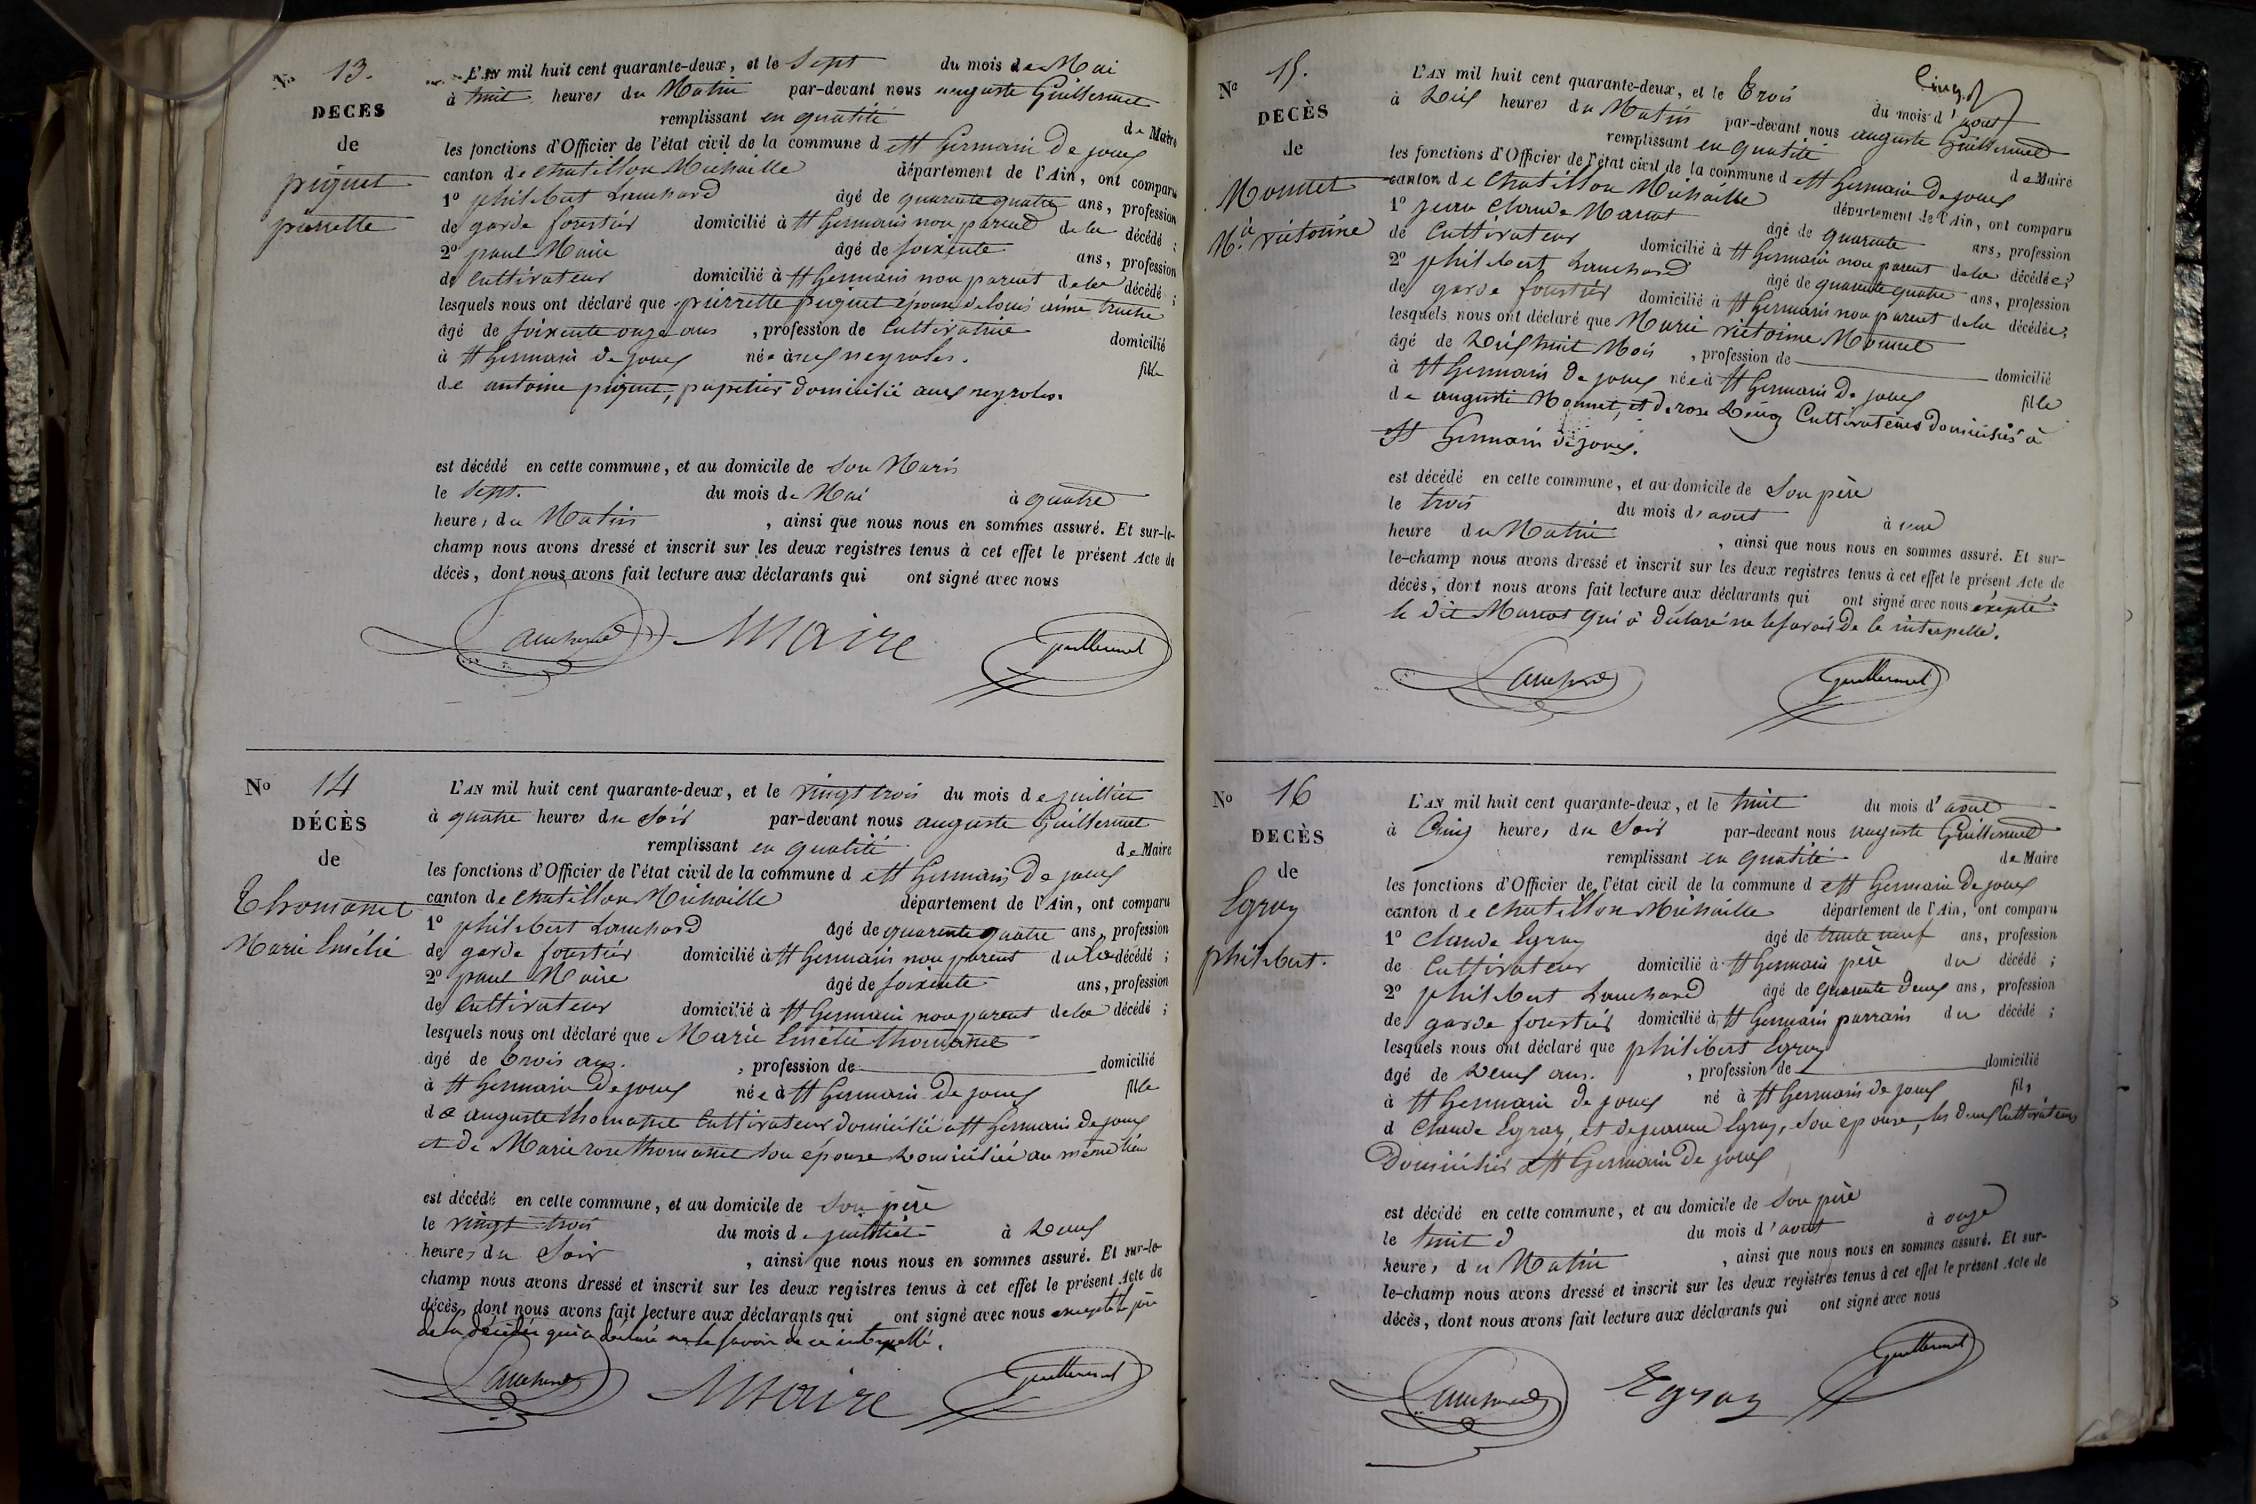 No 13.
DÉCÈS
de
piquet
pierrette
L'AN mil huit cent quarante-deux, et le Sept du mois de Mai
à huit heures du Matin par-devant nous auguste Guillermet
remplissant en qualité de Maire
les fonctions d'Officier de l'état civil de la commune d e St Germain De joux
canton de chatillon Michaille département de l'Ain, ont comparu
1º philibert Lanchard âgé de quarante quatre ans, profession
de garde forestier domicilié à St Germain non parent de la décédé ;
2º paul Maire âgé de soixante ans, profession
de Cultivateur domicilié à St Germain non parent de la décédé ;
lesquels nous ont déclaré que pierrette piquet épouse de louis aimé
âgé de soixante onze ans , profession de Cultivatrice domicilié
à St Germain de joux née à neyroles. fille
de antoine piquet, papetier domicilié aux neyroles.
est décédé en cette commune, et au domicile de Son Maris
le Sept. du mois de Mai à quatre
heures du Matin , ainsi que nous nous en sommes assuré. Et sur-le-
champ nous avons dressé et inscrit sur les deux registres tenus à cet effet le présent Acte de
décès, dont nous avons fait lecture aux déclarants qui ont signé avec nous
Lanchard Maire Guillermet
No 14
DÉCÈS
de
Thomasset
Marie Emélie
L'AN mil huit cent quarante-deux, et le vingt trois du mois de juilliet
à quatre heures du Soir par-devant nous auguste Guillermet
remplissant en qualité de Maire
les fonctions d'Officier de l'état civil de la commune d e St Germain De joux
canton de chatillon Michaille département de l'Ain, ont comparu
1º philibert Lanchard âgé de quarante quatre ans, profession
de garde forestier domicilié à St Germain non parent de la décédé ;
2º paul Maire âgé de soixante ans, profession
de Cultivateur domicilié à St Germain non parent de la décédé ;
lesquels nous ont déclaré que Marie Emélie thomasset
âgé de trois ans. , profession de domicilié
à St Germain De joux née à St Germain De joux fille
de auguste thomasset Cultivateur domicilié à St Germain De joux
et de Marie rose thomasset son épouse Domiciliée au même lieu
est décédé en cette commune, et au domicile de Son père
le vingt trois du mois de juilliet à Deux
heures du Soir , ainsi que nous nous en sommes assuré. Et sur-le-
champ nous avons dressé et inscrit sur les deux registres tenus à cet effet le présent Acte de
décès, dont nous avons fait lecture aux déclarants qui ont signé avec nous excepté le père
de la décédée qui a déclaré ne le savoir de ce interpellé.
Lanchard Maire Guillermet
No 15.
DÉCÈS
de
Monnet
M.a victorine
L'AN mil huit cent quarante-deux, et le Trois du mois d'aout
à Dix heures du Matin par-devant nous auguste Guillermet
remplissant en qualité de Maire
les fonctions d'Officier de l'état civil de la commune d e St Germain De joux
canton de Chatillon Michaille département de l'Ain, ont comparu
1º jean Claude Marcot âgé de quarante ans, profession
de Cultivateur domicilié à St Germain non parent de la décédée ;
2º philibert Lanchard âgé de quarante quatre ans, profession
de garde forestier domicilié à St Germain non parent de la décédée ;
lesquels nous ont déclaré que Marie victorine Monnet
âgé de Dix huit Mois , profession de domicilié
à St Germain De joux née à St Germain De joux fille
de auguste Monnet, et de rose Cultivateurs domiciliés à
St Germain De joux.
est décédé en cette commune, et au domicile de Son père
le trois du mois d'aout à une
heure du Matin , ainsi que nous nous en sommes assuré. Et sur-
le-champ nous avons dressé et inscrit sur les deux registres tenus à cet effet le présent Acte de
décès, dont nous avons fait lecture aux déclarants qui ont signé avec nous éxepté
le dit Marcot qui à déclaré ne le savoir de le interpellé.
Lanchard Guillermet
No 16
DÉCÈS
de
Egraz
philibert.
L'AN mil huit cent quarante-deux, et le huit du mois d'aout
à Cinq heures du Soir par-devant nous auguste Guillermet
remplissant en qualité de Maire
les fonctions d'Officier de l'état civil de la commune d e St Germain De joux
canton de Chatillon Michaille département de l'Ain, ont comparu
1º Claude Egraz âgé de trente neuf ans, profession
de Cultivateur domicilié à St Germain père du décédé ;
2º philibert Lanchard âgé de quarente Deux ans, profession
de garde forestier domicilié à St Germain parrain du décédé ;
lesquels nous ont déclaré que philibert Egraz
âgé de Deux ans. , profession de domicilié
à St Germain De joux né à St Germain De joux fils
d Claude Egraz, et de jeanne Egraz, son épouse, les deux Cultivateurs
Domiciliés à St Germain De joux
est décédé en cette commune, et au domicile de Son père
le huit du mois d'aout à onze
heures du Matin , ainsi que nous nous en sommes assuré. Et sur-
le-champ nous avons dressé et inscrit sur les deux registres tenus à cet effet le présent Acte de
décès, dont nous avons fait lecture aux déclarants qui ont signé avec nous
Lanchard Egraz Guillermet